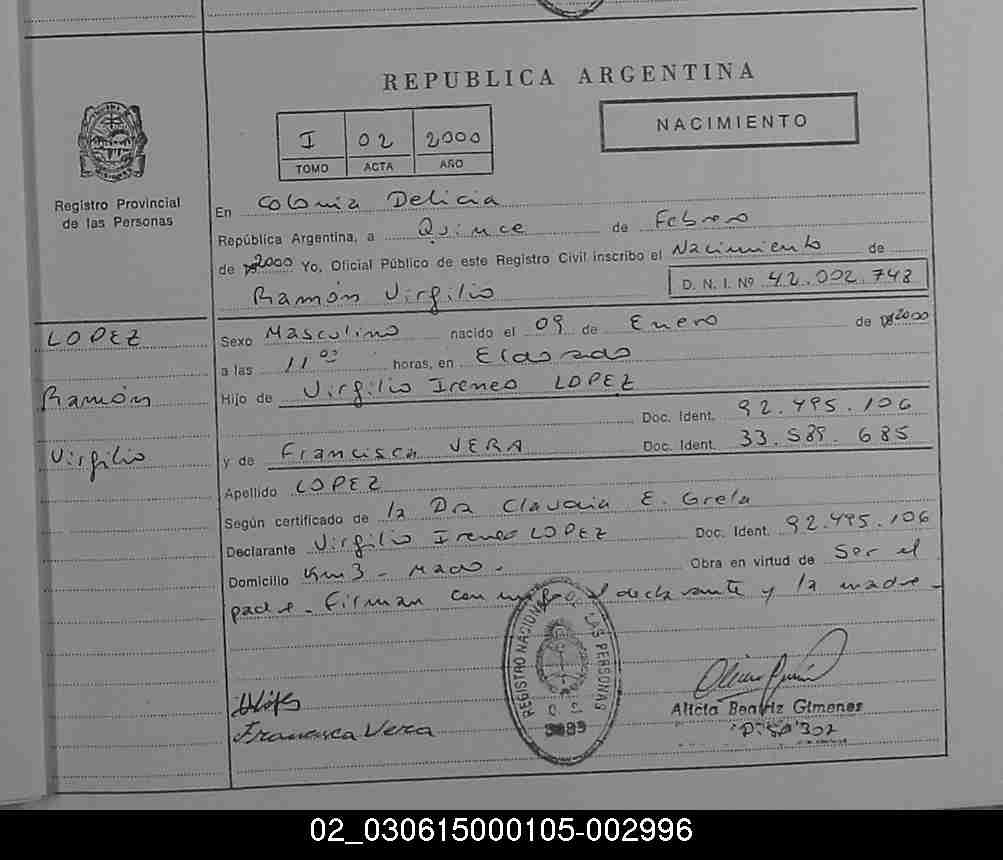 REPUBLICA ARGENTINA
I 02 2000
TOMO ACTA AÑO
NACIMIENTO
Registro Provincial
de las Personas
En Colonia Delicia
República Argentina, a Quince de Febrero
de 2000 Yo, Oficial Público de este Registro Civil inscribo el Nacimiento de
Ramón Virgilio
D. N. I. Nº 42.002.748
LOPEZ
Ramón
Virgilio
Sexo Masculino nacido el 09 de Enero de 2000
a las 11 00 horas, en Eldorado
Hijo de Virgilio Ireneo LOPEZ
Doc. Ident. 92.495.106
y de Francisca VERA Doc. Ident. 33.589.685
Apellido LOPEZ
Según certificado de la Dra Claudia E. Grela
Declarante Virgilio Ireneo LOPEZ Doc. Ident. 92.495.106
Domicilio Km3 - Maco - Obra en virtud de Ser el
padre - Firman con migo el declarante y la madre -
REGISTRO NACIONAL LAS PERSONAS
Francisca Vera
Alicia Beatriz Gimenes
02_030615000105-002996